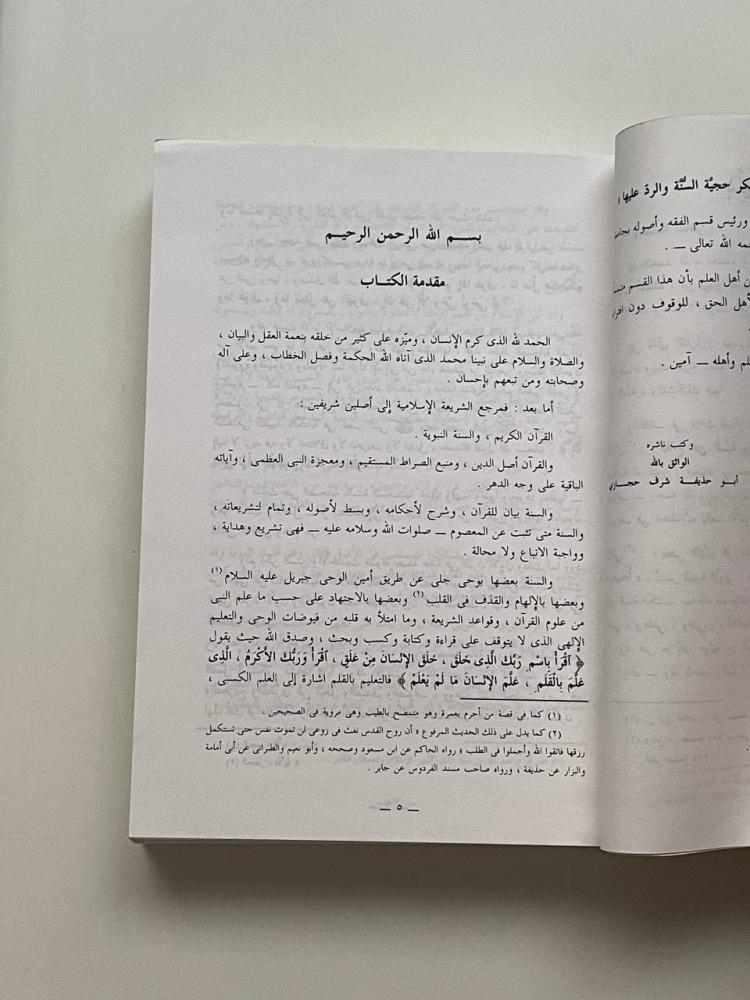 ـكر حجيَّة السُّنَّة والردّ عليها
ورئيس قسم الفقه وأصوله
ـمه الله تعالى ــ .
ن أهل العلم بأن هذا القسم
لأهل الحق ، للوقوف دون
ـلم وأهله ــ آمين .
وكتب ناشره
الواثق بالله
أبو حذيفة شرف حجازي
بســم الله الرحمن الرحيـم
مقدمة الكتـاب
الحمد لله الذى كرم الإنسان ، وميّزه على كثير من خلقه بنعمة العقل والبيان ،
والصلاة والسلام على نبينا محمد الذى آتاه الله الحكمة وفصل الخطاب ، وعلى آله
وصحابته ومن تبعهم بإحسان .
أما بعد : فمرجع الشريعة الإسلامية إلى أصلين شريفين :
القرآن الكريم ، والسنة النبوية .
والقرآن أصل الدين ، ومنبع الصراط المستقيم ، ومعجزة النبى العظمى ، وآياته
الباقية على وجه الدهر .
والسنة بيان للقرآن ، وشرح لأحكامه ، وبسط لأصوله ، وتمام لتشريعاته ،
والسنة متى ثبتت عن المعصوم ــ صلوات الله وسلامه عليه ــ فهى تشريع وهداية ،
وواجبة الاتباع ولا محالة .
والسنة بعضها بوحى جلى عن طريق أمين الوحى جبريل عليه السلام(١)
وبعضها بالإلهام والقذف فى القلب(٢) وبعضها بالاجتهاد على حسب ما علم النبى
من علوم القرآن ، وقواعد الشريعة ، وما امتلأ به قلبه من فيوضات الوحى والتعليم
الإلهى الذى لا يتوقف على قراءة وكتابة وكسب وبحث ، وصدق الله حيث يقول
﴿ ٱقْرَأْ بِاسْمِ رَبِّكَ الَّذِى خَلَقَ ، خَلَقَ الإِنْسَانَ مِنْ عَلَقٍ ، ٱقْرَأْ وَرَبُّكَ الأَكْرَمُ ، الَّذِى
عَلَّمَ بِالْقَلَمِ ، عَلَّمَ الإِنْسَانَ مَا لَمْ يَعْلَمْ ﴾ فالتعليم بالقلم اشارة إلى العلم الكسبى ،
(١) كما فى قصة من أحرم بعمرة وهو متمضح بالطيب وهى مروية فى الصحيحين .
(٢) كما يدل على ذلك الحديث المرفوع « أن روح القدس نفث فى روعى لن تموت نفس حتى تستكمل
رزقها فاتقوا الله وأجملوا فى الطلب » رواه الحاكم عن ابن مسعود وصححه ، وأبو نعيم والطبرانى عن أبى أمامة
والبزار عن حذيفة ، ورواه صاحب مسند الفردوس عن جابر .
ــ ٥ ــ